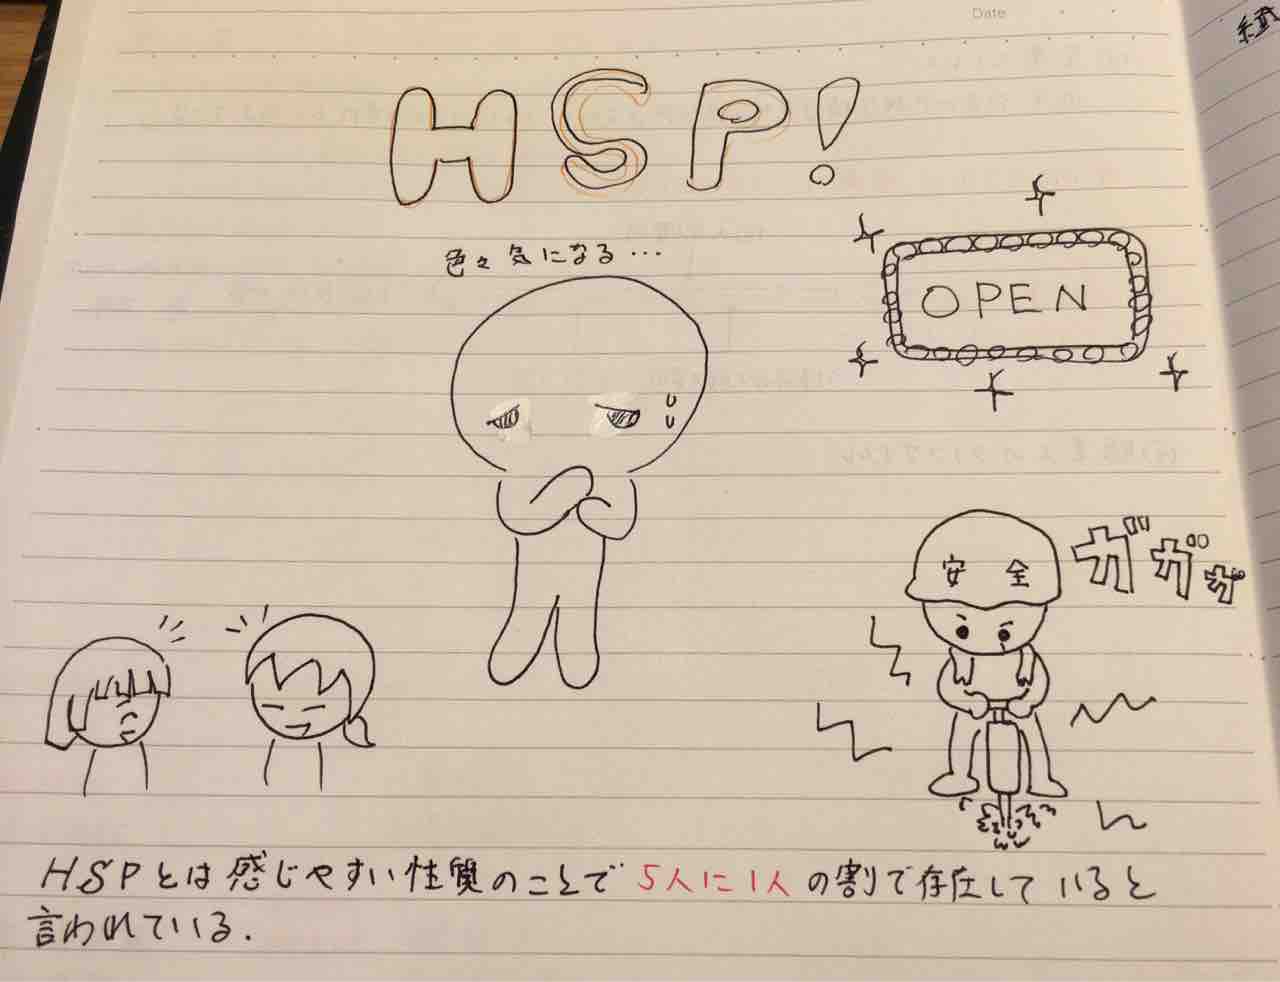 Date
HSP!
色々気になる…
OPEN
安全
ガガガ
HSPとは感じやすい性質のことで5人に1人の割で存在していると
言われている.